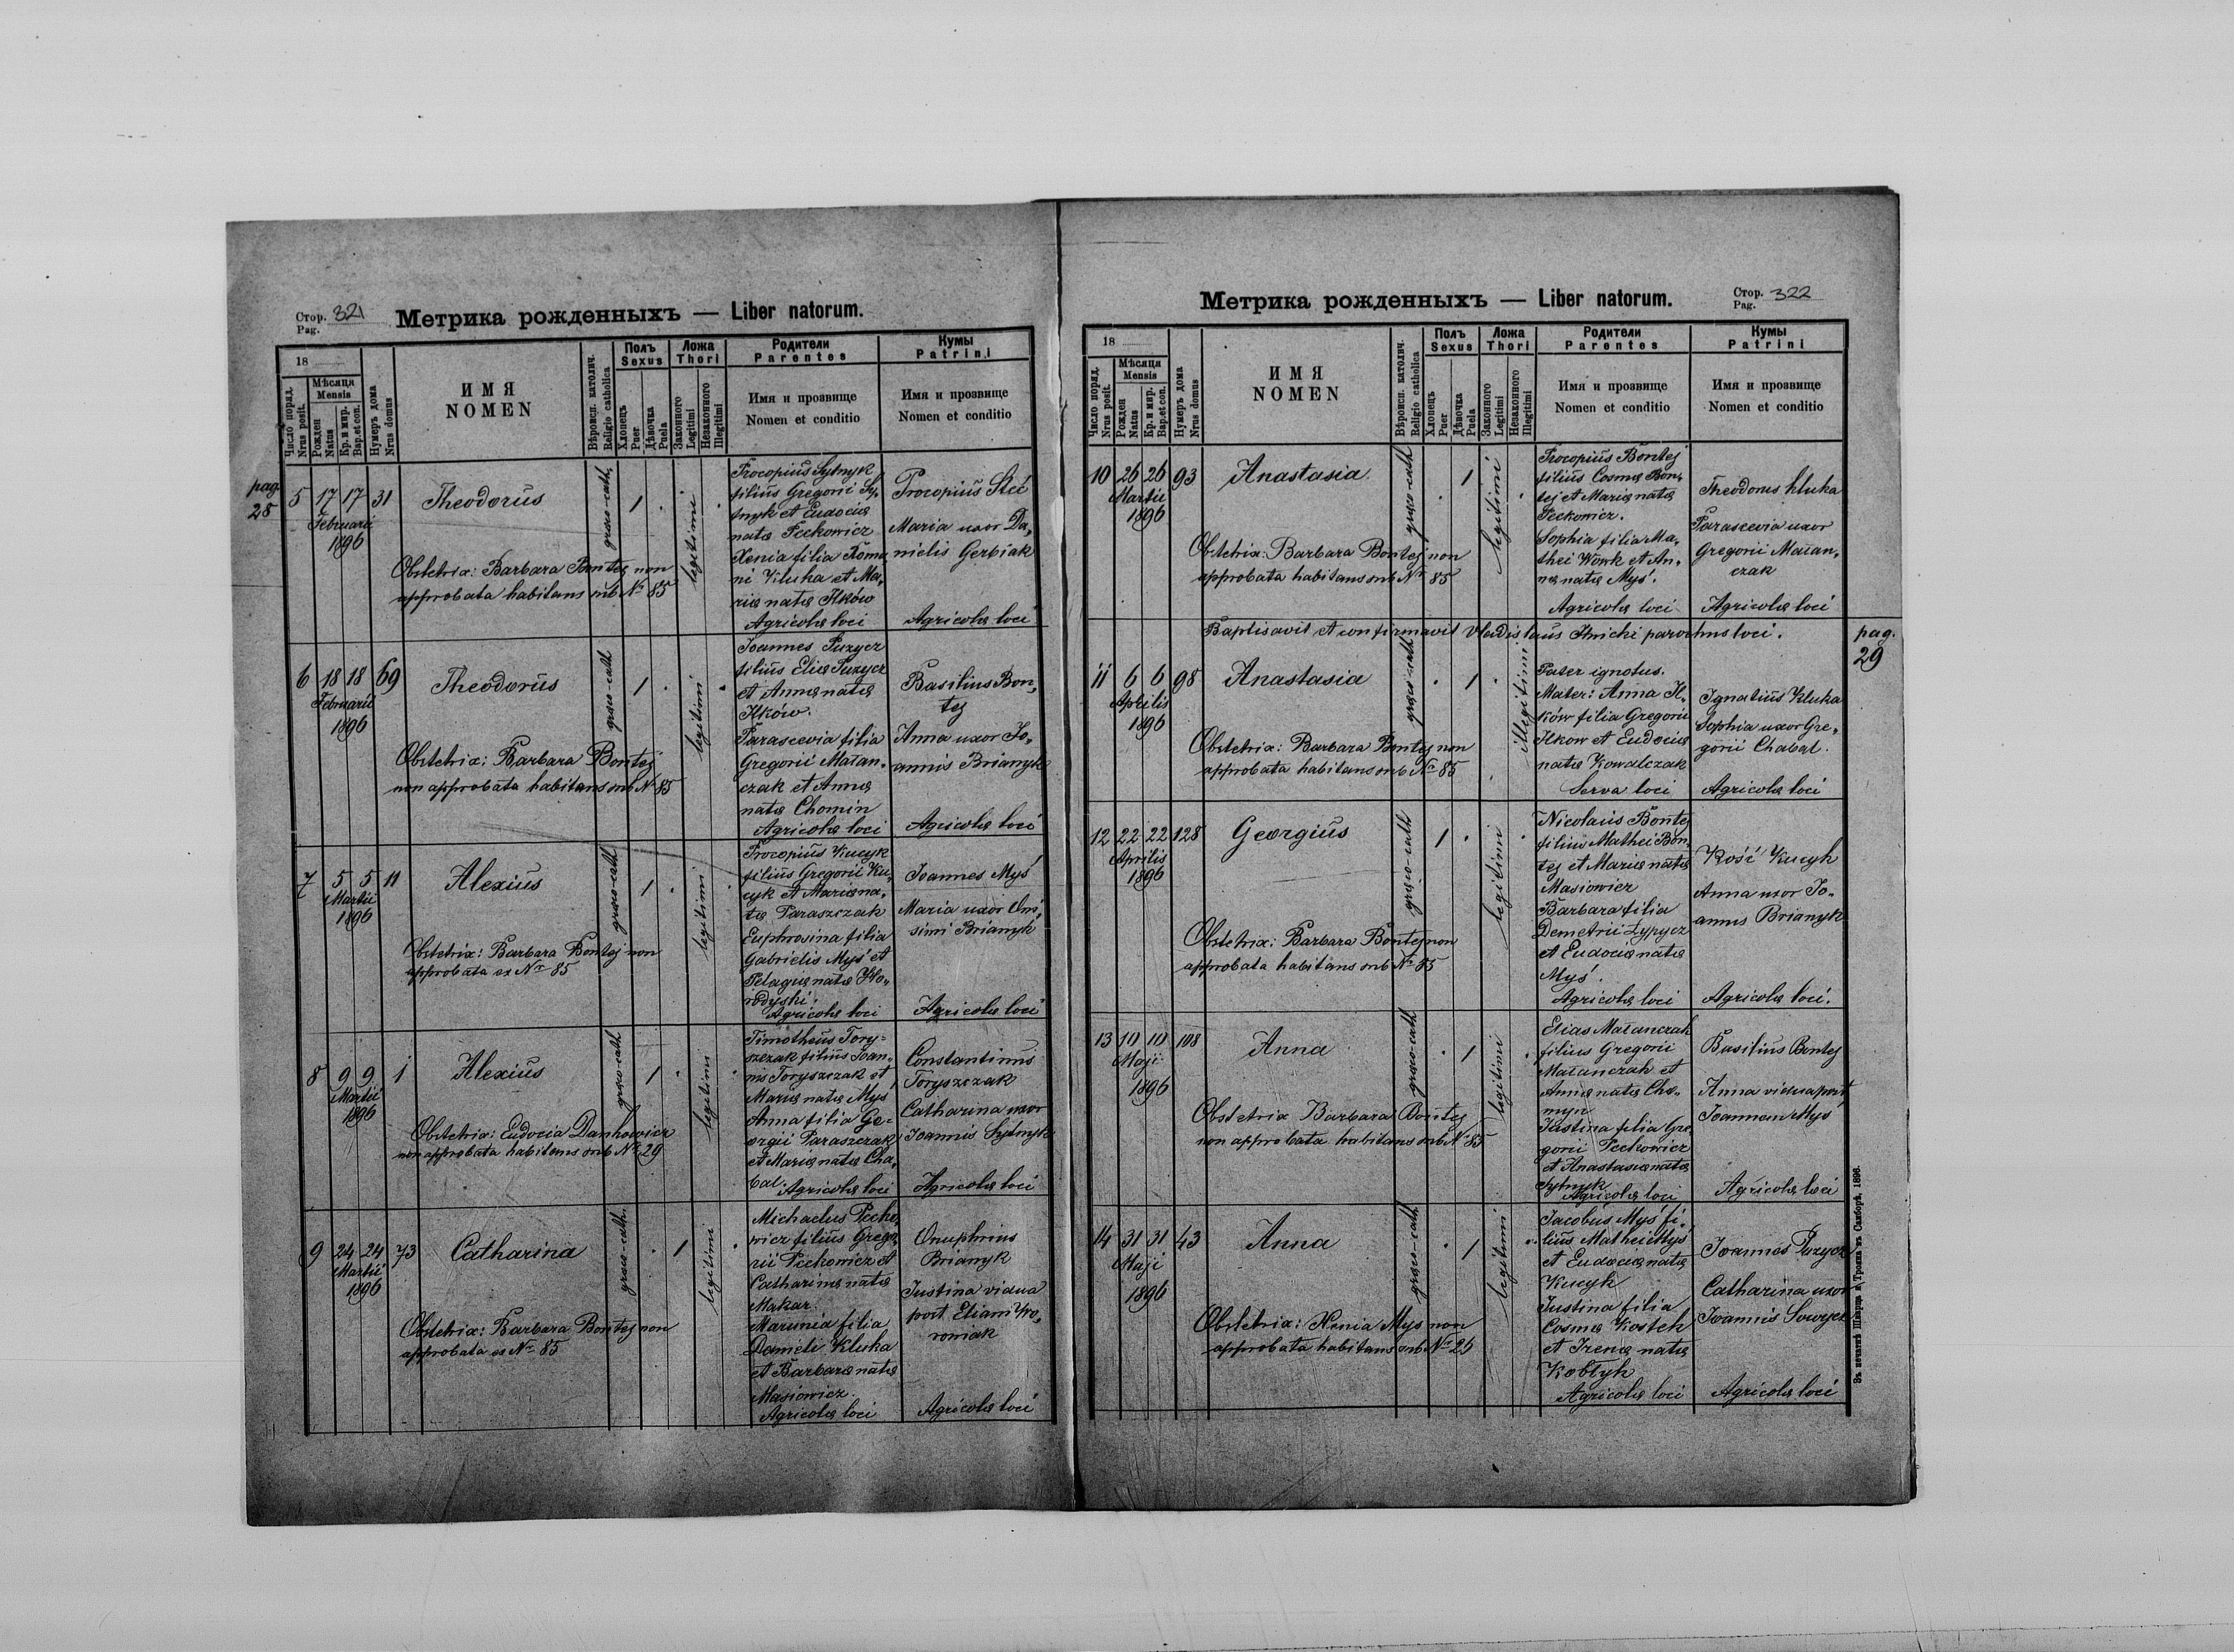 Стор. 321
Pag.
Метрика рожденныхъ — Liber natorum.
18
Число поряд.
Nrus posit.
Мѣсяца
Mensis
Рожден
Natus
Кр. и мир.
Bap. et con.
Нумеръ дома
Nrus domus
ИМЯ
NOMEN
Вѣроисп. католич.
Religio catholica
Полъ
Sexus
Хлопець
Puer
Дѣвочка
Puela
Ложа
Thori
Законного
Legitimi
Незаконного
Illegitimi
Родители
Parentes
Имя и прозвище
Nomen et conditio
Кумы
Patrini
Имя и прозвище
Nomen et conditio
pag.
28
5 17 17 31
Februarii
1896
Theodorus
graeco-cath.
1
legitimi
Obstetrix: Barbara Bontej non
approbata habitans sub Nr 85
Procopius Sytnyk
filius Gregorii Sy-
tnyk et Eudocia
nata Feckowicz
Xenia filia Roma
ni Kluka et Ma-
ria nata Ilków
Agricolae loci
Procopius Steć
Maria uxor Da-
nielis Gerbiak
Agricolae loci
6 18 18 69
Februarii
1896
Theodorus
graeco-cath
1
legitimi
Obstetrix: Barbara Bontej
non approbata habitans sub Nr 85
Joannes Puzycz
filius Eliae Puzycz
et Annae nata
Ilków.
Parascevia filia
Gregorii Maran-
czak et Annae
nata Chomin
Agricolae loci
Basilius Bon-
tej
Anna uxor Jo-
annis Brianyk
Agricolae loci
7 5 5 11
Martii
1896
Alexius
graeco-cath
1
legitimi
Obstetrix: Barbara Bontej non
approbata ex Nr 85
Procopius Kucyk
filius Gregorii Ku-
cyk et Maria na-
ta Paraszczak
Euphrosina filia
Gabrielis Myś et
Pelagia nata
Agricolae loci
Joannes Myś
Maria uxor Oni-
simi Brianyk
Agricolae loci
8 9 9 1
Martii
1896
Alexius
graeco-cath
1
legitimi
Obstetrix: Eudocia Dankowicz
non approbata habitans sub Nr 29
Timotheus Tory-
szczak filius Joan-
nis Toryszczak et
Maria nata Mys
Anna filia Ge-
orgii Paraszczak
et Maria nata Cha-
bal.
Agricolae loci
Constantinus
Toryszczak
Catharina uxor
Joannis Sytnyk
Agricolae loci
9 24 24 73
Martii
1896
Catharina
graeco-cath.
1
legitimi
Obstetrix: Barbara Bontej non
approbata ex Nr 85
Michaelus Fecko-
wicz filius Grego-
rii Feckowicz et
Catharina nata
Makar.
Marunia filia
Danieli Kluka
et Barbara nata
Masiowicz.
Agricolae loci
Onuphrius
Brianyk
Justina vidua
post Eliam Wo-
roniak
Agricolae loci
Метрика рожденныхъ — Liber natorum.
Стор. 322
Pag.
18
Число поряд.
Nrus posit.
Мѣсяца
Mensis
Рожден
Natus
Кр. и мир.
Bap. et con.
Нумеръ дома
Nrus domus
ИМЯ
NOMEN
Вѣроисп. католич.
Religio catholica
Полъ
Sexus
Хлопець
Puer
Дѣвочка
Puela
Ложа
Thori
Законного
Legitimi
Незаконного
Illegitimi
Родители
Parentes
Имя и прозвище
Nomen et conditio
Кумы
Patrini
Имя и прозвище
Nomen et conditio
10 26 26 93
Martii
1896
Anastasia
graeco-cath
1
legitimi
Obstetrix: Barbara Bontej non
approbata habitans sub Nr 85
Procopius Bontej
filius Cosma Bon-
tej et Maria nata
Feckowicz.
Sophia filia Ma-
thei Wowk et An-
na nata Myś.
Agricolae loci
Theodorus Kluka
Parascevia uxor
Gregorii Maran-
czak
Agricolae loci
Baptisavit et confirmavit Vladislaus Ilnicki parochus loci.
pag.
29
11 6 6 98
Aprilis
1896
Anastasia
graeco-cath
1
illegitimi
Obstetrix: Barbara Bontej non
approbata habitans sub Nr 85
Pater ignotus.
Mater: Anna Il-
ków filia Gregorii
Ilkow et Eudocia
nata Kowalczak
Serva loci
Ignatius Kluka
Sophia uxor Gre-
gorii Chabal.
Agricolae loci
12 22 22 128
Aprilis
1896
Georgius
graeco-cath
1
legitimi
Obstetrix: Barbara Bontej non
approbata habitans sub Nr 85
Nicolaus Bontej
filius Mathei Bon-
tej et Maria nata
Masiowicz
Barbara filia
Demetrii Łypycz
et Eudocia nata
Myś.
Agricolae loci
Kość Kucyk
Anna uxor Jo-
annis Brianyk
Agricolae loci.
13 10 10 108
Maji
1896
Anna
graeco-cath
1
legitimi
Obstetrix Barbara Bontej
non approbata habitans sub Nr 85
Elias Maranczak
filius Gregorii
Maranczak et
Anna nata Cho-
myn
Justina filia Gre-
gorii Feckowicz
et Anastasia nata
Sytnyk
Agricolae loci
Basilius Bontej
Anna vidua post
Joannem Myś
Agricolae loci
14 31 31 43
Maji
1896
Anna
graeco-cath
1
legitimi
Obstetrix: Xenia Mys non
approbata habitans sub Nr 26
Jacobus Myś fi-
lius Mathei Myś
et Eudocia nata
Kucyk
Justina filia
Cosma Kostek
et Irena nata
Kobłyk
Agricolae loci
Joannes Puzycz
Catharina uxor
Joannis
Agricolae loci
Въ печатнѣ Шварца и Трояна въ Самборѣ, 1896.